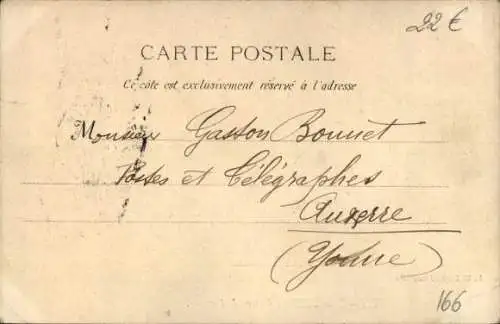 22 €
CARTE POSTALE
Ce côté est exclusivement réservé à l'adresse
Monsieur Gaston Bonnet
Postes et Télégraphes
Auxerre
(Yonne)
166